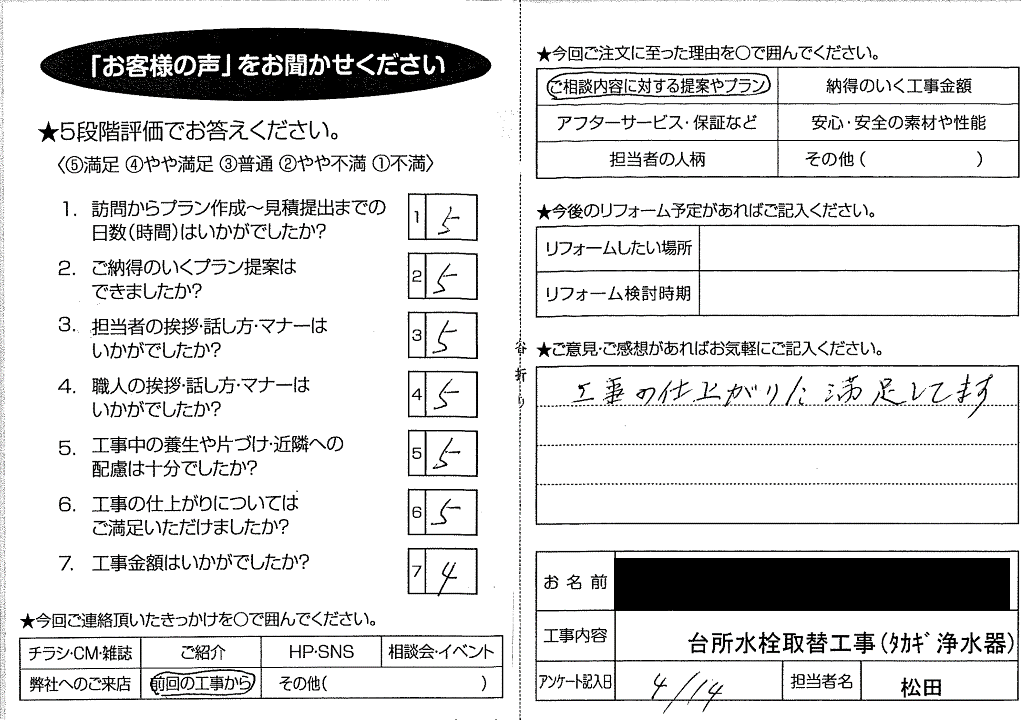 「お客様の声」をお聞かせください
★5段階評価でお答えください。
〈⑤満足 ④やや満足 ③普通 ②やや不満 ①不満〉
1. 訪問からプラン作成～見積提出までの
日数(時間)はいかがでしたか?
1 5
2. ご納得のいくプラン提案は
できましたか?
2 5
3. 担当者の挨拶・話し方・マナーは
いかがでしたか?
3 5
4. 職人の挨拶・話し方・マナーは
いかがでしたか?
4 5
5. 工事中の養生や片づけ・近隣への
配慮は十分でしたか?
5 5
6. 工事の仕上がりについては
ご満足いただけましたか?
6 5
7. 工事金額はいかがでしたか?
7 4
★今回ご連絡頂いたきっかけを○で囲んでください。
チラシ・CM・雑誌 ご紹介 HP・SNS 相談会・イベント
弊社へのご来店 前回の工事から その他( )
谷折り
★今回ご注文に至った理由を○で囲んでください。
ご相談内容に対する提案やプラン 納得のいく工事金額
アフターサービス・保証など 安心・安全の素材や性能
担当者の人柄 その他( )
★今後のリフォーム予定があればご記入ください。
リフォームしたい場所
リフォーム検討時期
★ご意見・ご感想があればお気軽にご記入ください。
工事の仕上がりに満足してます
お名前
工事内容 台所水栓取替工事(ﾀｶｷﾞ浄水器)
アンケート記入日 4/14 担当者名 松田